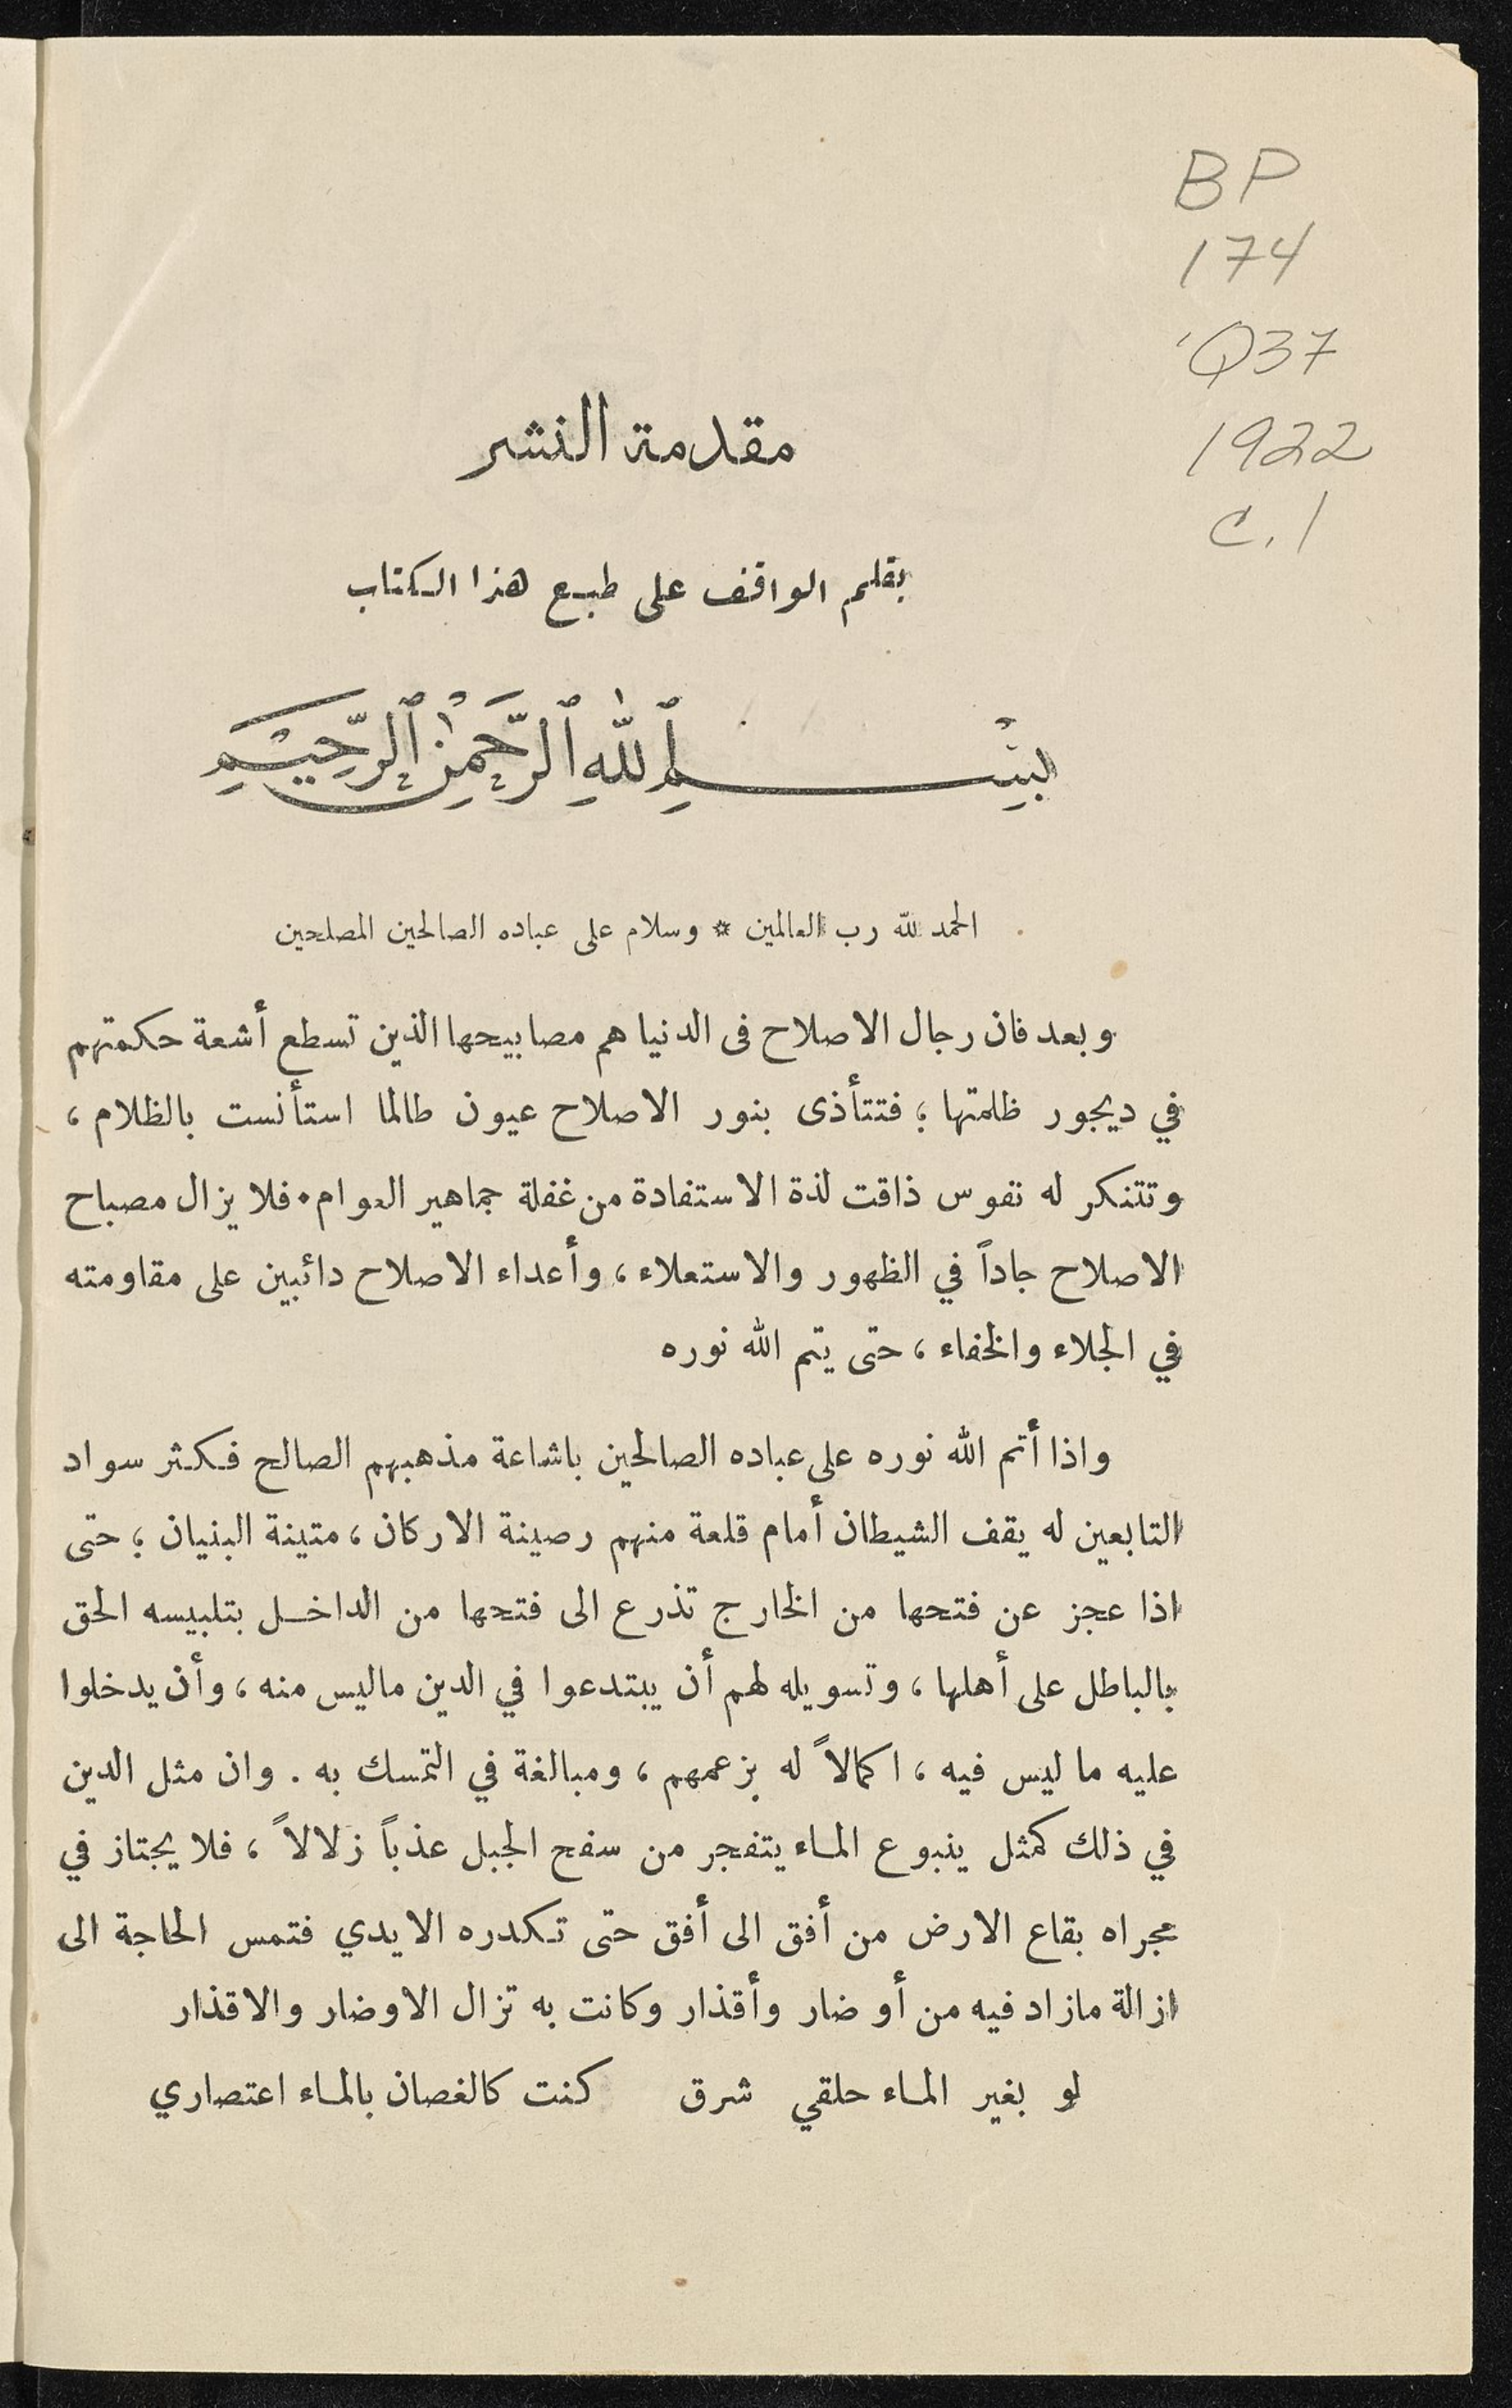 BP
174
'Q37
1922
c.1
مقدمة النشر
بقلم الواقف على طبع هذا الكتاب
بِسْمِ ٱللّٰهِ ٱلرَّحْمٰنِ ٱلرَّحِيْمِ
الحمد لله رب العالمين * وسلام على عباده الصالحين المصلحين
وبعد فان رجال الاصلاح فى الدنيا هم مصابيحها الذين تسطع أشعة حكمتهم
في ديجور ظلمتها ؛ فتتأذى بنور الاصلاح عيون طالما استأنست بالظلام ،
وتتنكر له نفوس ذاقت لذة الاستفادة من غفلة جماهير العوام . فلا يزال مصباح
الاصلاح جاداً في الظهور والاستعلاء ، وأعداء الاصلاح دائبين على مقاومته
في الجلاء والخفاء ، حتى يتم الله نوره
واذا أتم الله نوره على عباده الصالحين باشاعة مذهبهم الصالح فكثر سواد
التابعين له يقف الشيطان أمام قلعة منهم رصينة الاركان ، متينة البنيان ؛ حتى
اذا عجز عن فتحها من الخارج تذرع الى فتحها من الداخل بتلبيسه الحق
بالباطل على أهلها ، وتسويله لهم أن يبتدعوا في الدين ماليس منه ، وأن يدخلوا
عليه ما ليس فيه ، اكمالاً له بزعمهم ، ومبالغة في التمسك به . وان مثل الدين
في ذلك كمثل ينبوع الماء يتفجر من سفح الجبل عذباً زلالاً ، فلا يجتاز في
مجراه بقاع الارض من أفق الى أفق حتى تكدره الايدي فتمس الحاجة الى
ازالة مازاد فيه من أوضار وأقذار وكانت به تزال الاوضار والاقذار
لو بغير الماء حلقي شرق كنت كالغصان بالماء اعتصاري